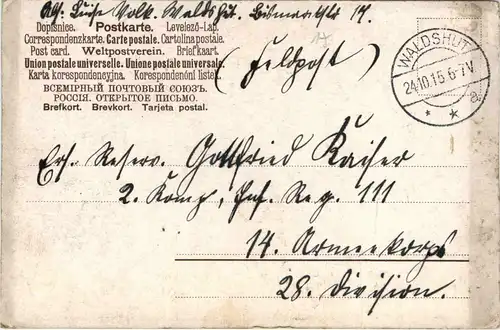 Abs. Luise Volk. Waldshut. Bismarckstr 17.
Dopisnice. Postkarte. Levelező-Lap.
Correspondenzkarte. Carte postale. Cartolina postale.
Post card. Weltpostverein. Briefkaart.
Union postale universelle. Unione postale universale.
Karta korespondencyjna. Korespondenční lístek.
ВСЕМІРНЫЙ ПОЧТОВЫЙ СОЮЗЪ.
РОССІЯ. ОТКРЫТОЕ ПИСЬМО.
Brefkort. Brevkort. Tarjeta postal.
(Feldpost)
WALDSHUT
24.10.15 6-7V
* *
Ers. Reserv. Gottfried Kaiser
2. Komp, Inf. Reg. 111
14. Armeekorps
28. Division.